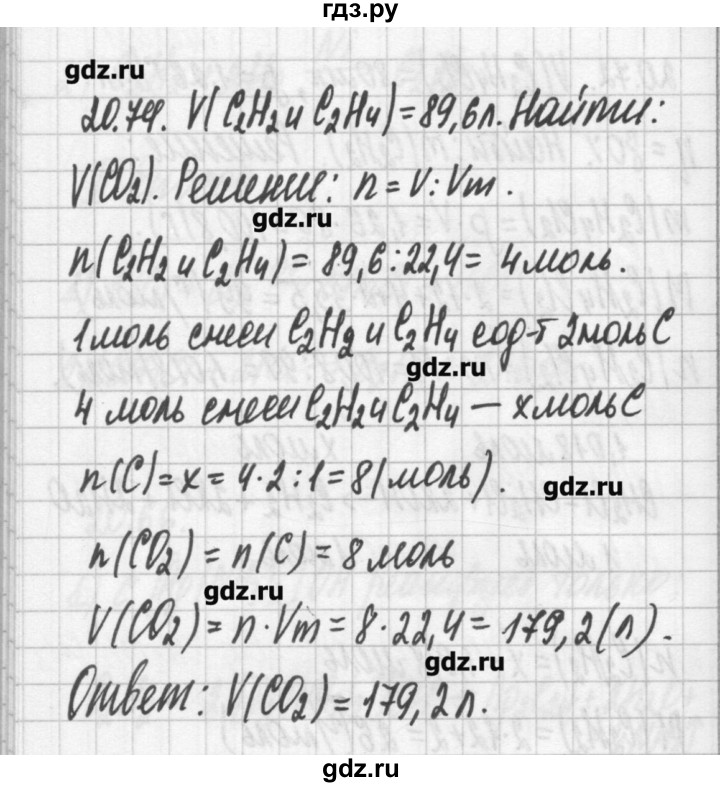 гдз.ру
gdz.ru
20.74. V(C₂H₂ и C₂H₄) = 89,6л. Найти:
V(CO₂). Решение: n = V : Vm .
gdz.ru
n(C₂H₂ и C₂H₄) = 89,6 : 22,4 = 4 моль.
1 моль смеси C₂H₂ и C₂H₄ сод-т 2 моль C
gdz.ru
4 моль смеси C₂H₂ и C₂H₄ — x моль C
n(C) = x = 4 · 2 : 1 = 8(моль).
gdz.ru
n(CO₂) = n(C) = 8 моль
gdz.ru
V(CO₂) = n · Vm = 8 · 22,4 = 179,2(л).
gdz.ru
Ответ: V(CO₂) = 179,2 л.
gdz.ru